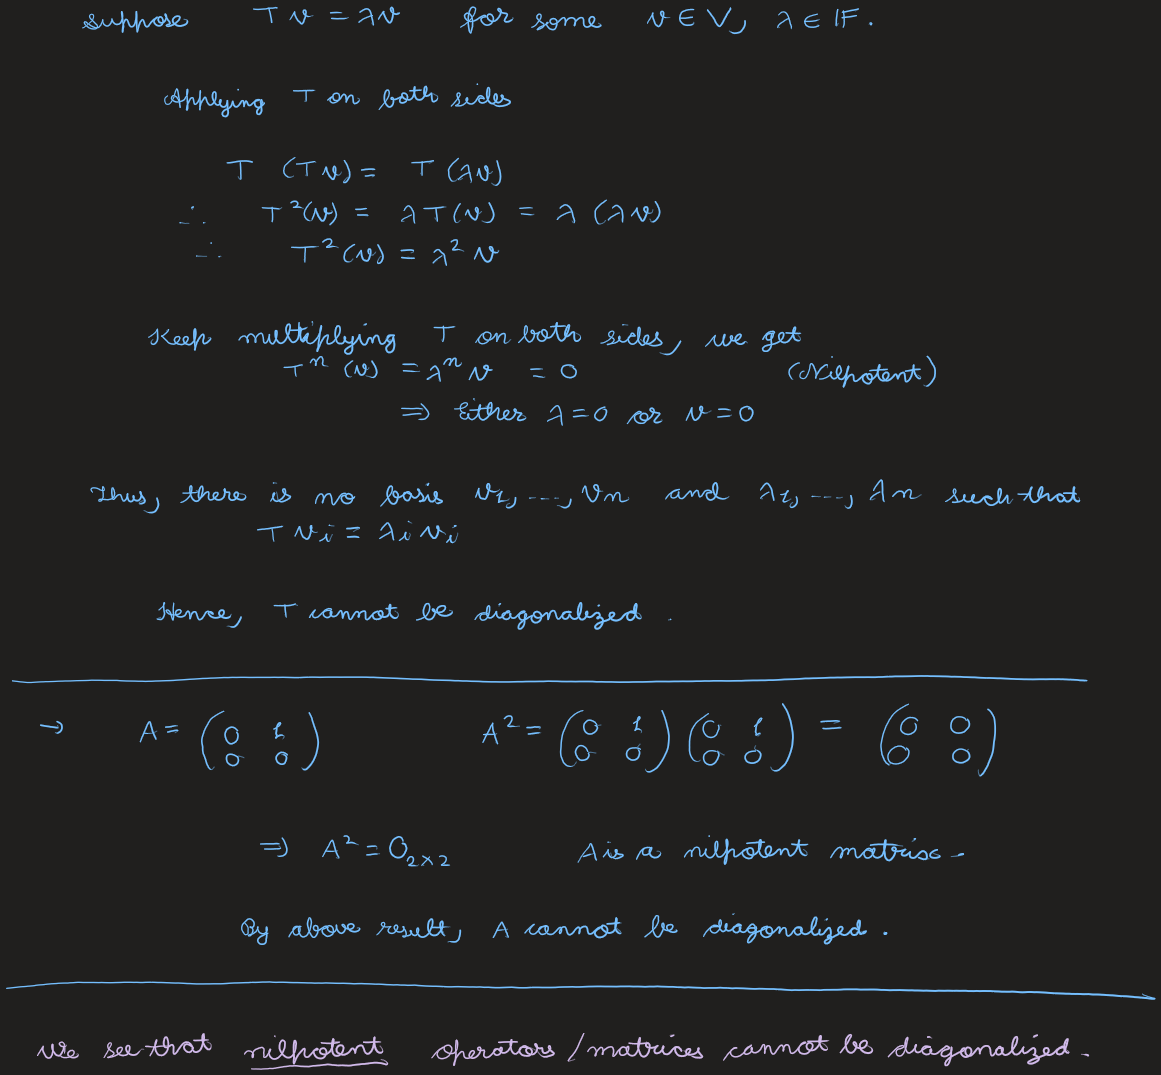 suppose Tv = λv for some v ∈ V, λ ∈ F.
Applying T on both sides
T (Tv) = T(λv)
∴ T²(v) = λT(v) = λ(λv)
∴ T²(v) = λ²v
Keep multiplying T on both sides, we get
Tⁿ(v) = λⁿv = 0 (Nilpotent)
⇒ Either λ=0 or v=0
Thus, there is no basis v₁, ---, vₙ and λ₁, ---, λₙ such that
Tvᵢ = λᵢvᵢ
Hence, T cannot be diagonalized.
→ A = (0 1; 0 0) A² = (0 1; 0 0)(0 1; 0 0) = (0 0; 0 0)
⇒ A² = O₂ₓ₂ A is a nilpotent matrix.
By above result, A cannot be diagonalized.
We see that nilpotent operators/matrices cannot be diagonalized.